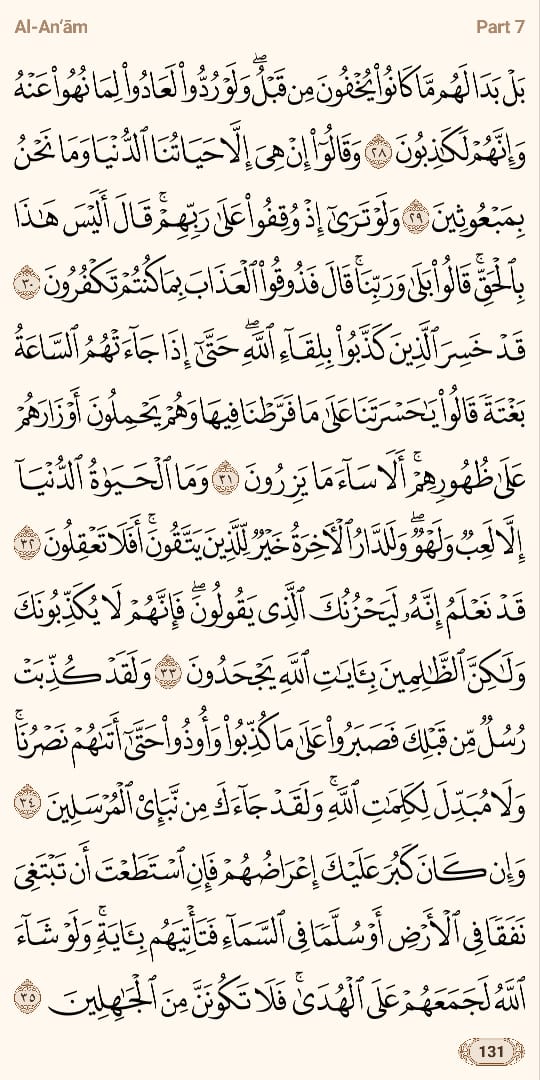 Al-An‘ām Part 7
بَلۡ بَدَا لَهُم مَّا كَانُواْ يُخۡفُونَ مِن قَبۡلُۖ وَلَوۡ رُدُّواْ لَعَادُواْ لِمَا نُهُواْ عَنۡهُ
وَإِنَّهُمۡ لَكَٰذِبُونَ ٢٨ وَقَالُوٓاْ إِنۡ هِيَ إِلَّا حَيَاتُنَا ٱلدُّنۡيَا وَمَا نَحۡنُ
بِمَبۡعُوثِينَ ٢٩ وَلَوۡ تَرَىٰٓ إِذۡ وُقِفُواْ عَلَىٰ رَبِّهِمۡۚ قَالَ أَلَيۡسَ هَٰذَا
بِٱلۡحَقِّۚ قَالُواْ بَلَىٰ وَرَبِّنَاۚ قَالَ فَذُوقُواْ ٱلۡعَذَابَ بِمَا كُنتُمۡ تَكۡفُرُونَ ٣٠
قَدۡ خَسِرَ ٱلَّذِينَ كَذَّبُواْ بِلِقَآءِ ٱللَّهِۖ حَتَّىٰٓ إِذَا جَآءَتۡهُمُ ٱلسَّاعَةُ
بَغۡتَةٗ قَالُواْ يَٰحَسۡرَتَنَا عَلَىٰ مَا فَرَّطۡنَا فِيهَا وَهُمۡ يَحۡمِلُونَ أَوۡزَارَهُمۡ
عَلَىٰ ظُهُورِهِمۡۚ أَلَا سَآءَ مَا يَزِرُونَ ٣١ وَمَا ٱلۡحَيَوٰةُ ٱلدُّنۡيَآ
إِلَّا لَعِبٞ وَلَهۡوٞۖ وَلَلدَّارُ ٱلۡأٓخِرَةُ خَيۡرٞ لِّلَّذِينَ يَتَّقُونَۚ أَفَلَا تَعۡقِلُونَ ٣٢
قَدۡ نَعۡلَمُ إِنَّهُۥ لَيَحۡزُنُكَ ٱلَّذِي يَقُولُونَۖ فَإِنَّهُمۡ لَا يُكَذِّبُونَكَ
وَلَٰكِنَّ ٱلظَّٰلِمِينَ بِـَٔايَٰتِ ٱللَّهِ يَجۡحَدُونَ ٣٣ وَلَقَدۡ كُذِّبَتۡ
رُسُلٞ مِّن قَبۡلِكَ فَصَبَرُواْ عَلَىٰ مَا كُذِّبُواْ وَأُوذُواْ حَتَّىٰٓ أَتَىٰهُمۡ نَصۡرُنَاۚ
وَلَا مُبَدِّلَ لِكَلِمَٰتِ ٱللَّهِۚ وَلَقَدۡ جَآءَكَ مِن نَّبَإِيْ ٱلۡمُرۡسَلِينَ ٣٤
وَإِن كَانَ كَبُرَ عَلَيۡكَ إِعۡرَاضُهُمۡ فَإِنِ ٱسۡتَطَعۡتَ أَن تَبۡتَغِيَ
نَفَقٗا فِي ٱلۡأَرۡضِ أَوۡ سُلَّمٗا فِي ٱلسَّمَآءِ فَتَأۡتِيَهُم بِـَٔايَةٖۚ وَلَوۡ شَآءَ
ٱللَّهُ لَجَمَعَهُمۡ عَلَى ٱلۡهُدَىٰۚ فَلَا تَكُونَنَّ مِنَ ٱلۡجَٰهِلِينَ ٣٥
131